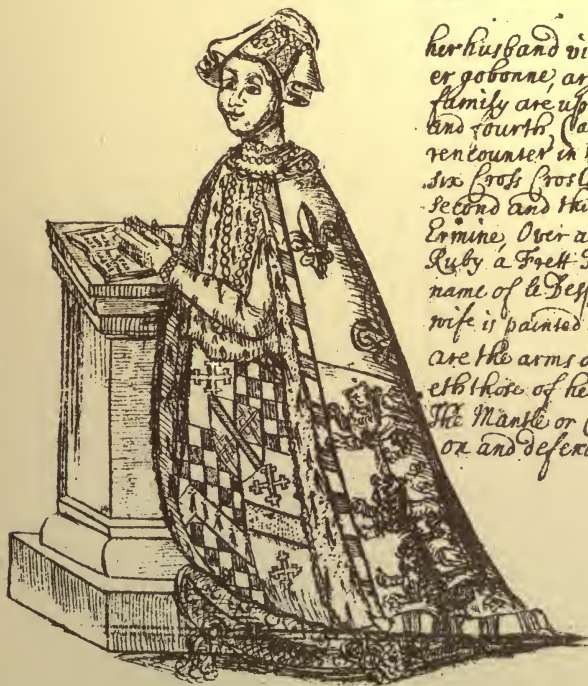 her husband
er gobonne, ar
family are up
and fourth
rencounter in
six Cross Crosl
second and thi
Ermine, Over a
Ruby a Frett
name of le Desp
wife is painted
are the arms o
eth those of he
The Mantle or
on and defen